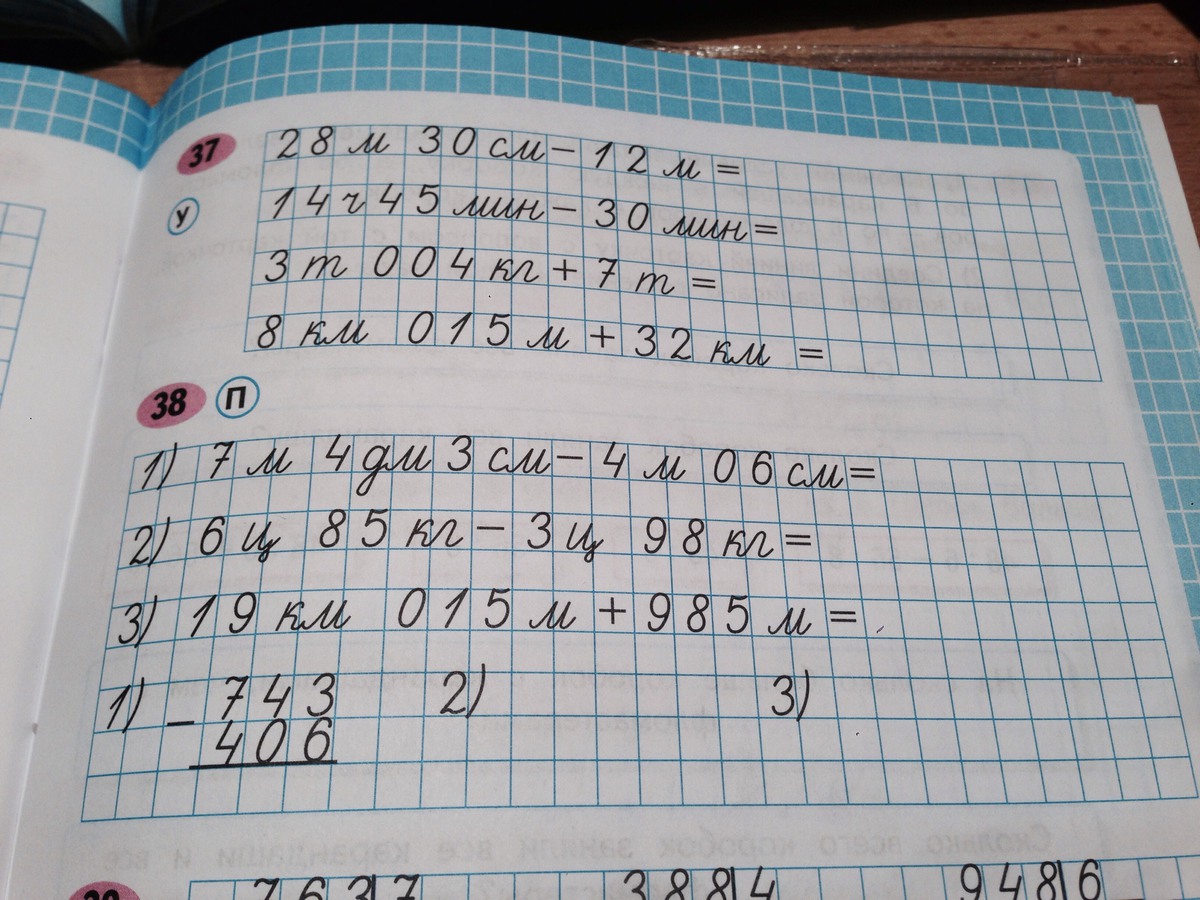 37
28 м 30 см - 12 м =
У
14 ч 45 мин - 30 мин =
3 т 004 кг + 7 т =
8 км 015 м + 32 км =
38 П
1) 7 м 4 дм 3 см - 4 м 06 см =
2) 6 ц 85 кг - 3 ц 98 кг =
3) 19 км 015 м + 985 м =
1) - 743 2) 3)
406
7637 3884 9486